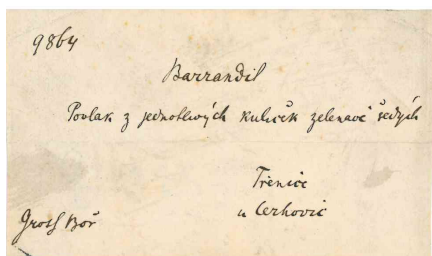 9864
Barrandit
Povlak z jednotlivých kuliček zelenavě šedých
Třenice
u Cerhovic
Groth Boř